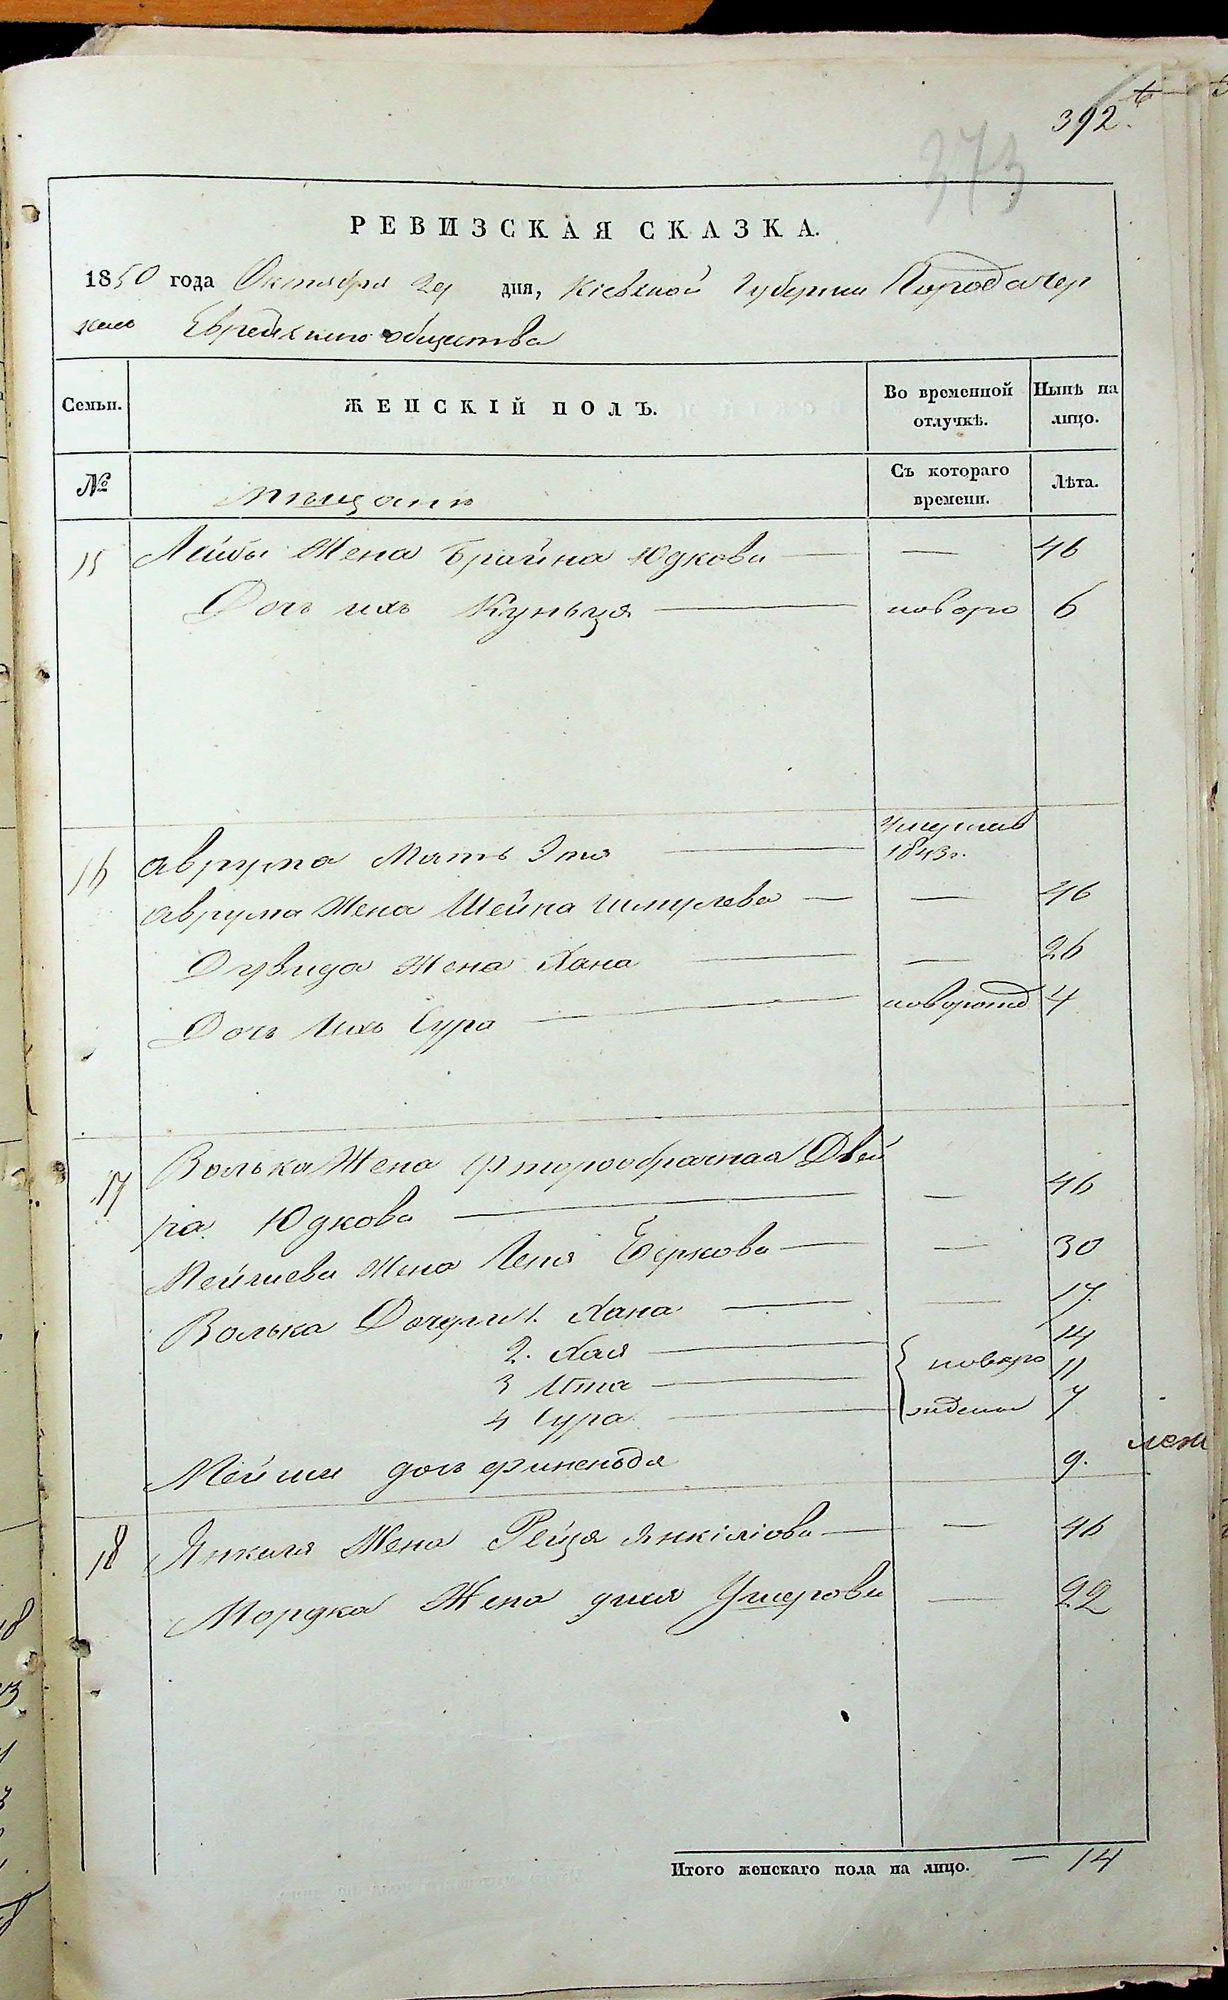 392.
373
РЕВИЗСКАЯ СКАЗКА.
1850 года Октября 29 дня, Кіевской Губерніи Погребыщен
скаго Еврейскаго общества
Семьи. ЖЕНСКІЙ ПОЛЪ. Во временной отлучкѣ. Нынѣ на лицо.
№ Мѣщане Съ котораго времени. Лѣта.
15 Лейбы Жена Брайна Юдкова — — 46
Дочь ихъ Куньця — новоро 6
16 Аврума Мать Эта — умерша 1843г.
Аврума Жена Шейна Шмулева — — 46
Дувида Жена Хана — — 26
Дочь Ихъ Сура — новорожд 4
17 Волька Жена фторообрачная Двей
ра Юдкова — — 46
Мейшева Жена Лея Беркова — — 30
Волька Дочери 1. Хана — — 17
2. Хая — 14
3 Итта — новоро 11
4 Сура — ждены 7
Мейши дочь 9.
18 Янкеля Жена Рейзя Янкіліова — — 46
Мордка Жена Умерова — 22
Итого женскаго пола на лицо. — 14